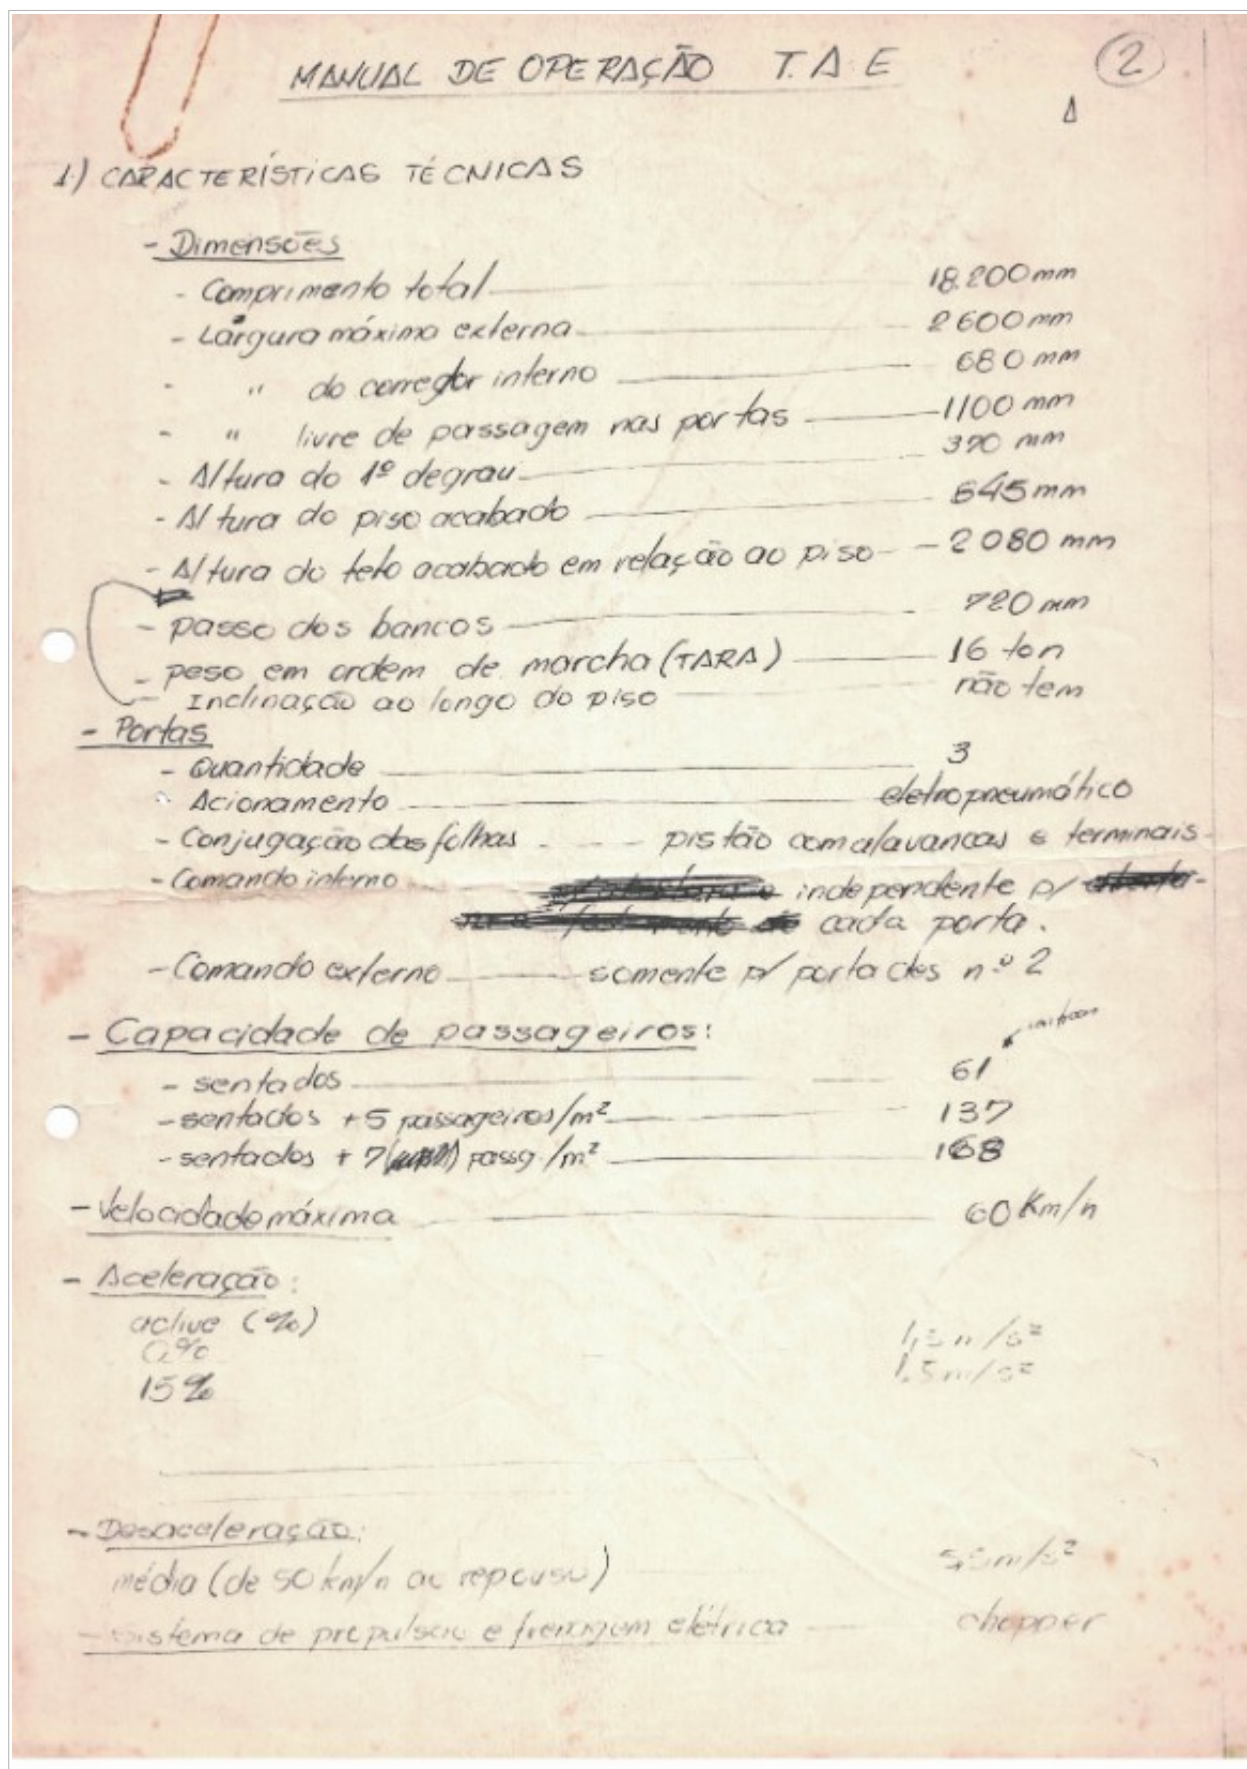 MANUAL DE OPERAÇÃO T.A.E
2
1) CARACTERÍSTICAS TÉCNICAS
- Dimensões
- Comprimento total 18.200 mm
- Largura máxima externa 2600 mm
- " do corredor interno 680 mm
- " livre de passagem nas portas 1100 mm
- Altura do 1º degrau 370 mm
- Altura do piso acabado 645 mm
- Altura do teto acabado em relação ao piso - 2080 mm
- passo dos bancos 720 mm
- peso em ordem de marcha (TARA) 16 ton
- Inclinação ao longo do piso não tem
- Portas
- Quantidade 3
- Acionamento eletropneumático
- Conjugação das folhas - - - pistão com alavancas e terminais
- Comando interno independente p/
cada porta.
- Comando externo somente p/ porta des nº 2
- Capacidade de passageiros:
- sentados 61
- sentados + 5 passageiros/m² 137
- sentados + 7 passg./m² 168
- Velocidade máxima 60 Km/h
- Aceleração:
aclive (%)
0% 1,5 m/s²
15% 1,5 m/s²
- Desaceleração:
média (de 50 km/h ao repouso) m/s²
- sistema de propulsão e frenagem elétrica chopper